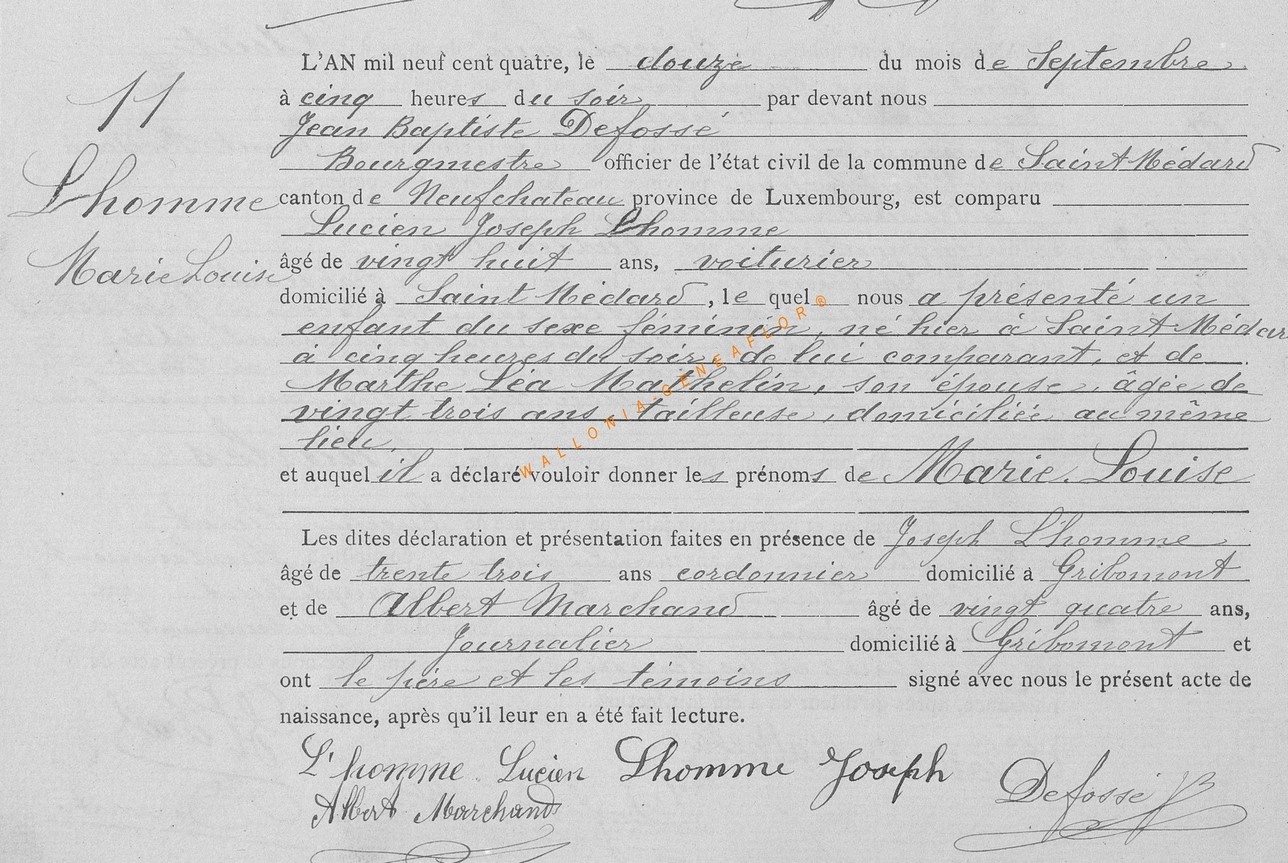 11
Lhomme
Marie Louise
L'AN mil neuf cent quatre, le douze du mois de Septembre
à cinq heures du soir par devant nous
Jean Baptiste Defossé
Bourgmestre officier de l'état civil de la commune de Saint Médard
canton de Neufchateau province de Luxembourg, est comparu
Lucien Joseph Lhomme
âgé de vingt huit ans, voiturier
domicilié à Saint Médard, le quel nous a présenté un
enfant du sexe féminin, né hier à Saint Médard
a cinq heures du soir, de lui comparant, et de
Marthe Léa Mathelin, son épouse âgée de
vingt trois ans, tailleuse, domiciliée au même
lieu
et auquel il a déclaré vouloir donner les prénoms de Marie Louise
Les dites déclaration et présentation faites en présence de Joseph L'homme
âgé de trente trois ans cordonnier domicilié à Gribomont
et de Albert Marchand âgé de vingt quatre ans,
Journalier domicilié à Gribomont et
ont le père et les témoins signé avec nous le présent acte de
naissance, après qu'il leur en a été fait lecture.
L'homme Lucien Lhomme Joseph
Albert Marchand
Defossé JB
WALLONIA-GENEAFLOR®